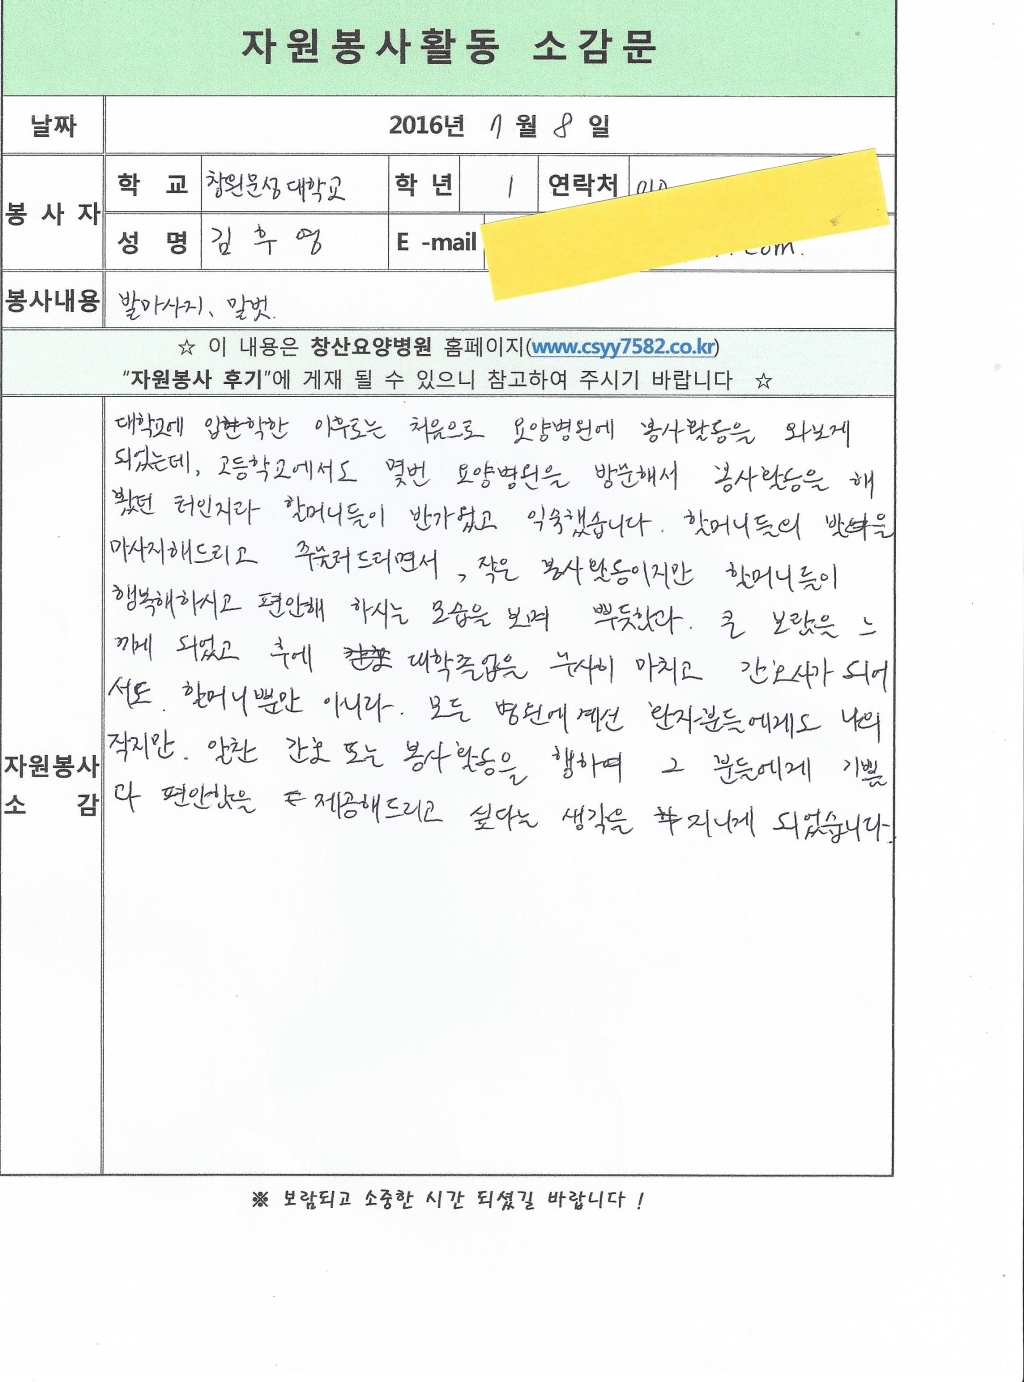 자원봉사활동 소감문
날짜 2016년 7월 8일
봉사자 학 교 창원문성대학교 학년 1 연락처 010
성 명 김후영 E -mail com.
봉사내용 발마사지, 말벗.
☆ 이 내용은 창산요양병원 홈페이지(www.csyy7582.co.kr)
"자원봉사 후기"에 게재 될 수 있으니 참고하여 주시기 바랍니다 ☆
자원봉사 소 감
대학교에 입학한 이후로는 처음으로 요양병원에 봉사활동을 와보게
되었는데, 고등학교에서도 몇번 요양병원을 방문해서 봉사활동을 해
봤던 터인지라 할머니들이 반가웠고 익숙했습니다. 할머니들의 발을
마사지해드리고 주물러드리면서, 작은 봉사활동이지만 할머니들이
행복해하시고 편안해 하시는 모습을 보며 뿌듯함과. 큰 보람을 느
끼게 되었고 후에 대학졸업을 무사히 마치고 간호사가 되어
서도. 할머니뿐만 아니라. 모든 병원에계신 환자분들에게도 나의
작지만. 알찬 간호 또는 봉사활동을 행하며 그 분들에게 기쁨
과 편안함을 제공해드리고 싶다는 생각을 지니게 되었습니다.
※ 보람되고 소중한 시간 되셨길 바랍니다 !